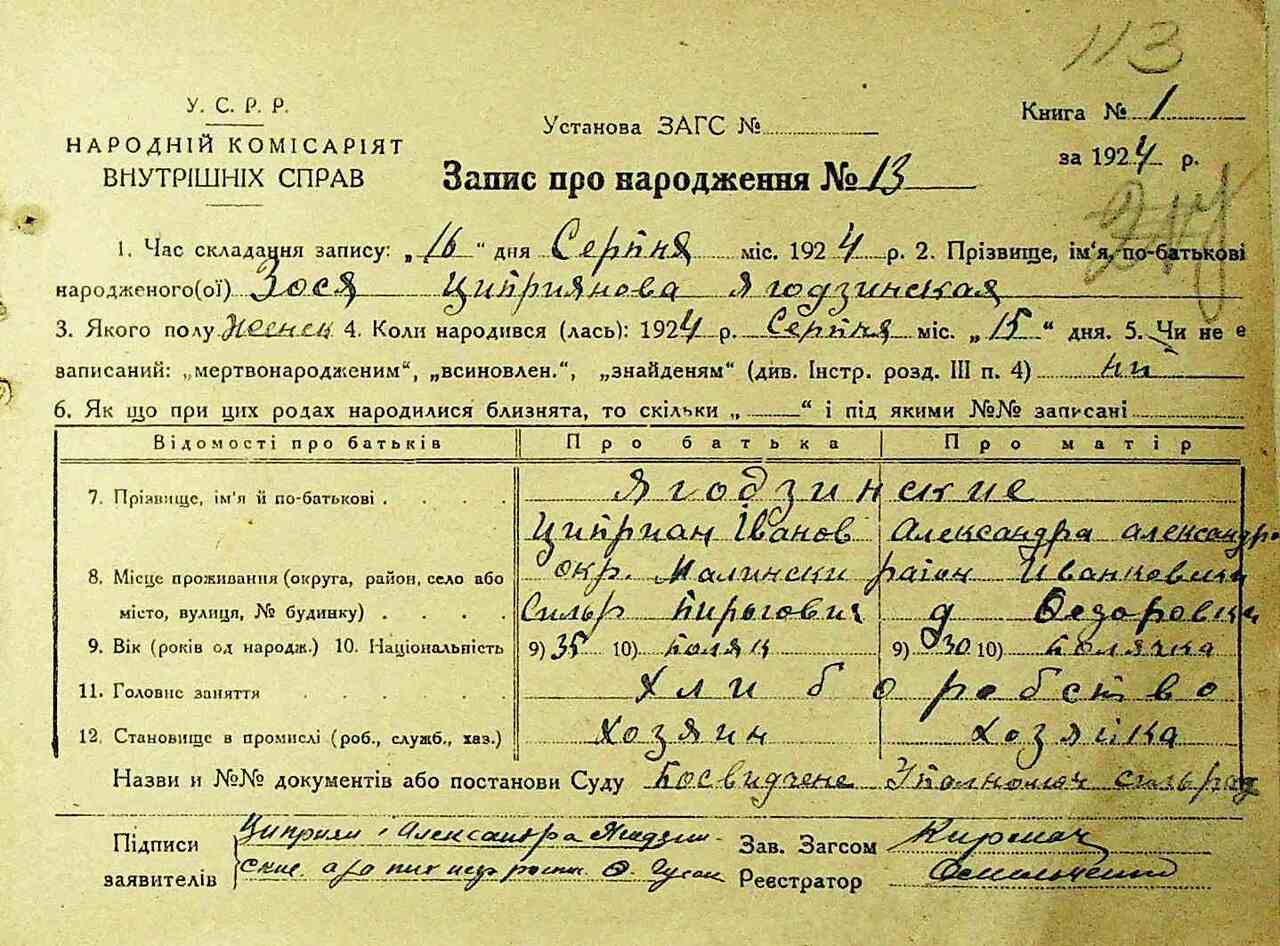 113
У. С. Р. Р.
НАРОДНІЙ КОМІСАРІЯТ
ВНУТРІШНІХ СПРАВ
Установа ЗАГС №
Книга № 1
за 1924 р.
Запис про народження № 13
1. Час складання запису: „16“ дня Серпня міс. 1924 р. 2. Прізвище, ім'я, по-батькові
народженого(ої) Зося Циприянова Ягодзинская
3. Якого полу женск 4. Коли народився (лась): 1924 р. Серпня міс. „15“ дня. 5. Чи не є
записаний: „мертвонародженим“, „всиновлен.“, „знайденям“ (див. Інстр. розд. III п. 4) ни
6. Як що при цих родах народилися близнята, то скільки „ “ і під якими №№ записані
Відомості про батьків Про батька Про матір
7. Прізвище, ім'я й по-батькові Ягодзинские
Циприан Іванов Александра Александро
8. Місце проживання (округа, район, село або окр. Малински район Иванкович
місто, вулиця, № будинку) Сильр Пирогович д Федоровка
9. Вік (років од народж.) 10. Національність 9) 35 10) поляк 9) 30 10) полячка
11. Головне заняття хлиборобство
12. Становище в промислі (роб., служб., хаз.) хозяин хозяйка
Назви и №№ документів або постанови Суду Посвидчене Уполномоч сильрад
Підписи Циприян і Александра Ягодзин-
заявителів ские а за них
Зав. Загсом
Реєстратор